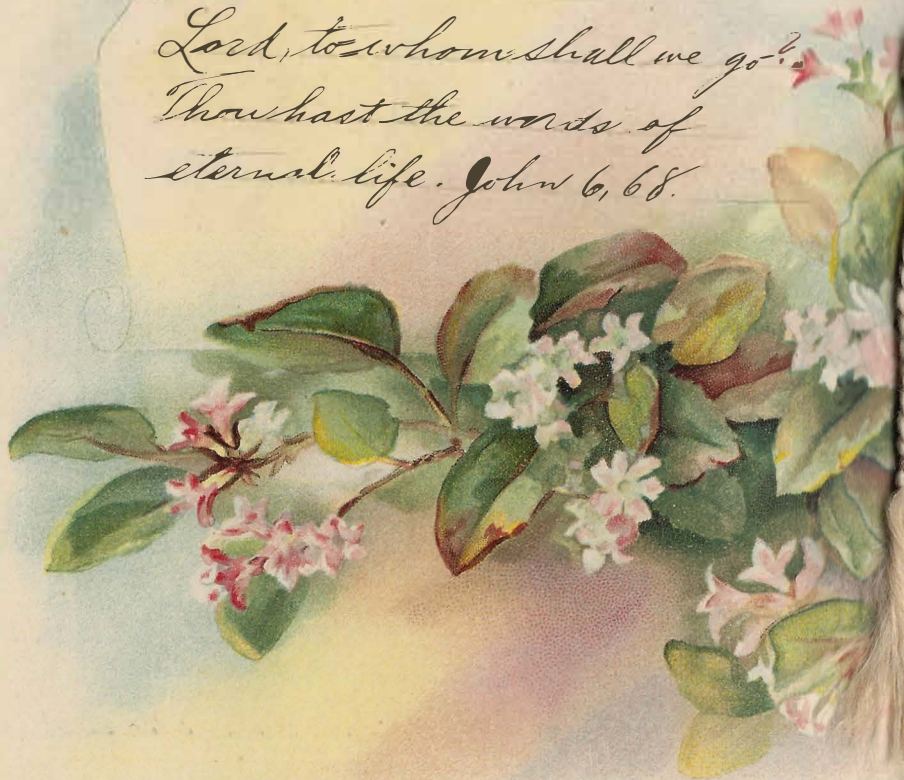 Lord, to whom shall we go?
Thou hast the words of
eternal life. John 6, 68.